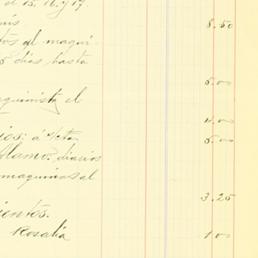 el 15, 16 y 17
8.50
tos al maqui-
5 dias hasta
5.00
aquinista el
4.00
ios: a Jeta
5.00
Alamo, diarios
maquinas al
3.25
ientos.
Rosalia 1 00